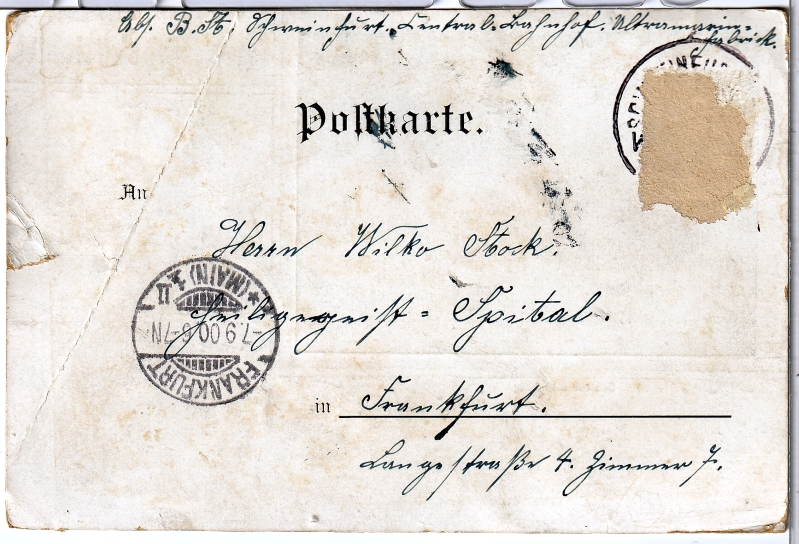 Abs. B. St. Schweinfurt. Central-Bahnhof. Ultramarin-
fabrick.
SCHWEINFU
Postkarte.
An
Herrn Wilko Stock.
Heiligegeist = Spital.
in Frankfurt.
Langestraße 4. Zimmer 7.
FRANKFURT
-7.9.00.6-7N
* (MAIN) 3.